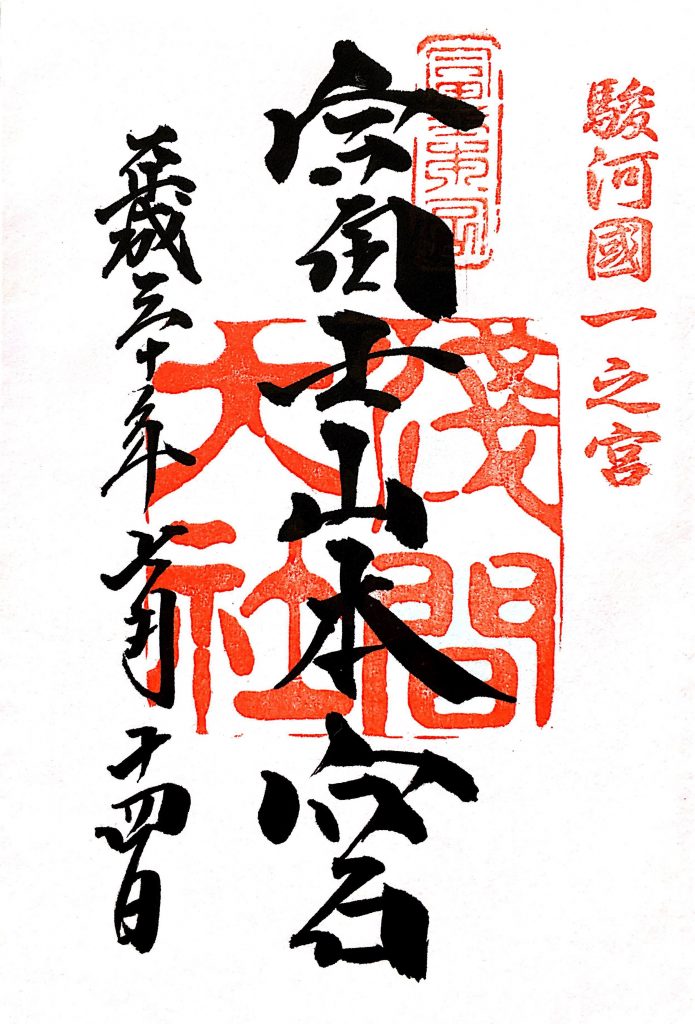 駿河國一之宮
富士山本宮
淺間大社
平成三十年七月十四日